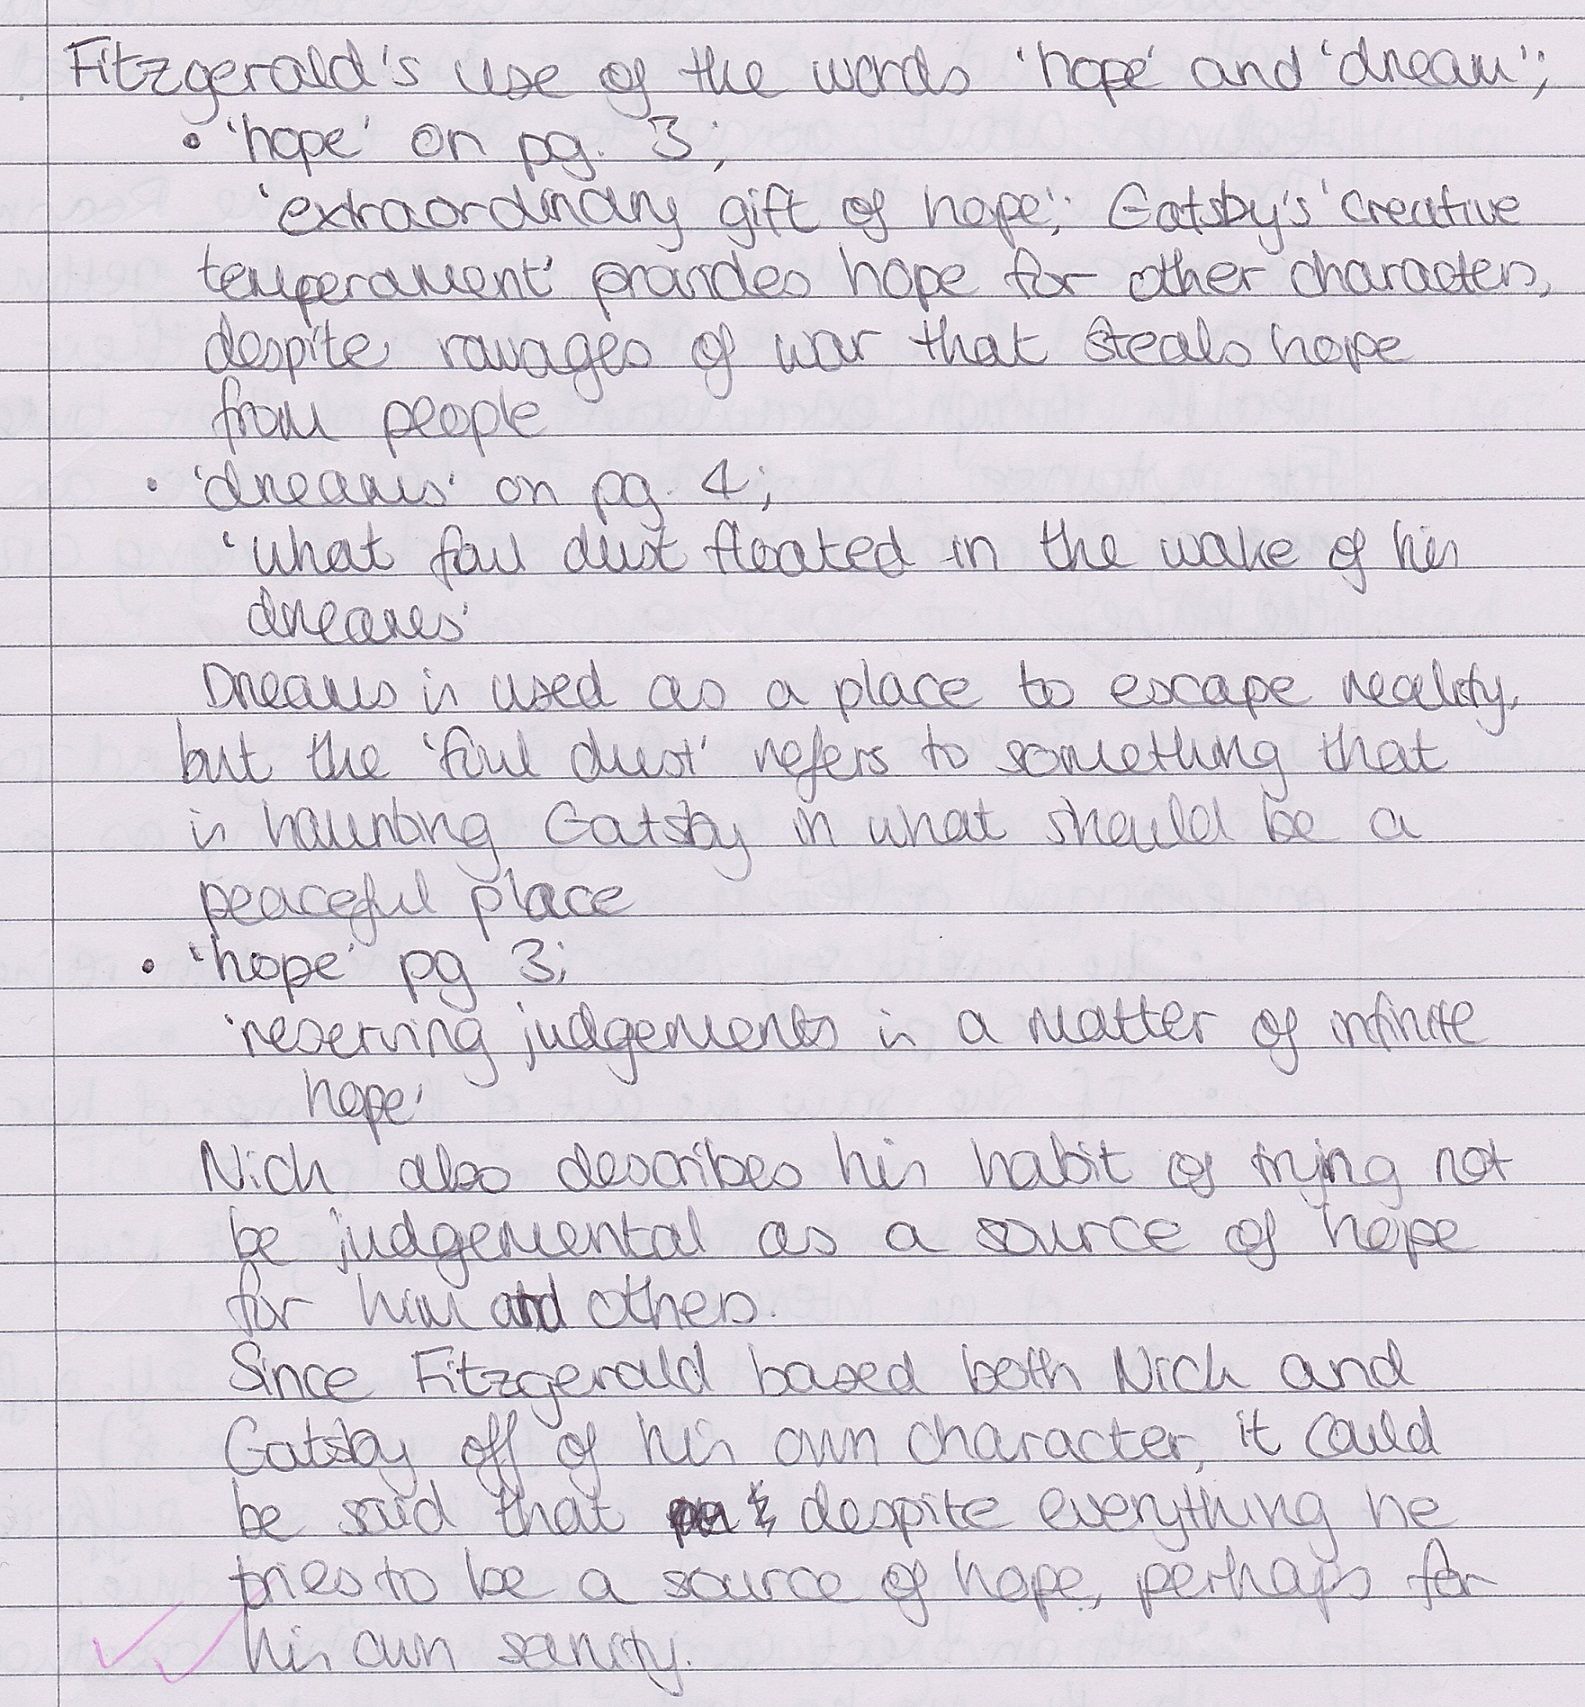 Fitzgerald's use of the words 'hope' and 'dream';
• 'hope' on pg. 3;
'extraordinary gift of hope'; Gatsby's 'creative
temperament' provides hope for other characters,
despite ravages of war that steals hope
from people
• 'dreams' on pg. 4;
'what foul dust floated in the wake of his
dreams'
Dreams is used as a place to escape reality,
but the 'foul dust' refers to something that
is haunting Gatsby in what should be a
peaceful place
• 'hope' pg 3;
'reserving judgements is a matter of infinite
hope'
Nick also describes his habit of trying not
be judgemental as a source of hope
for him and others.
Since Fitzgerald based both Nick and
Gatsby off of his own character, it could
be said that despite everything he
tries to be a source of hope, perhaps for
his own sanity.